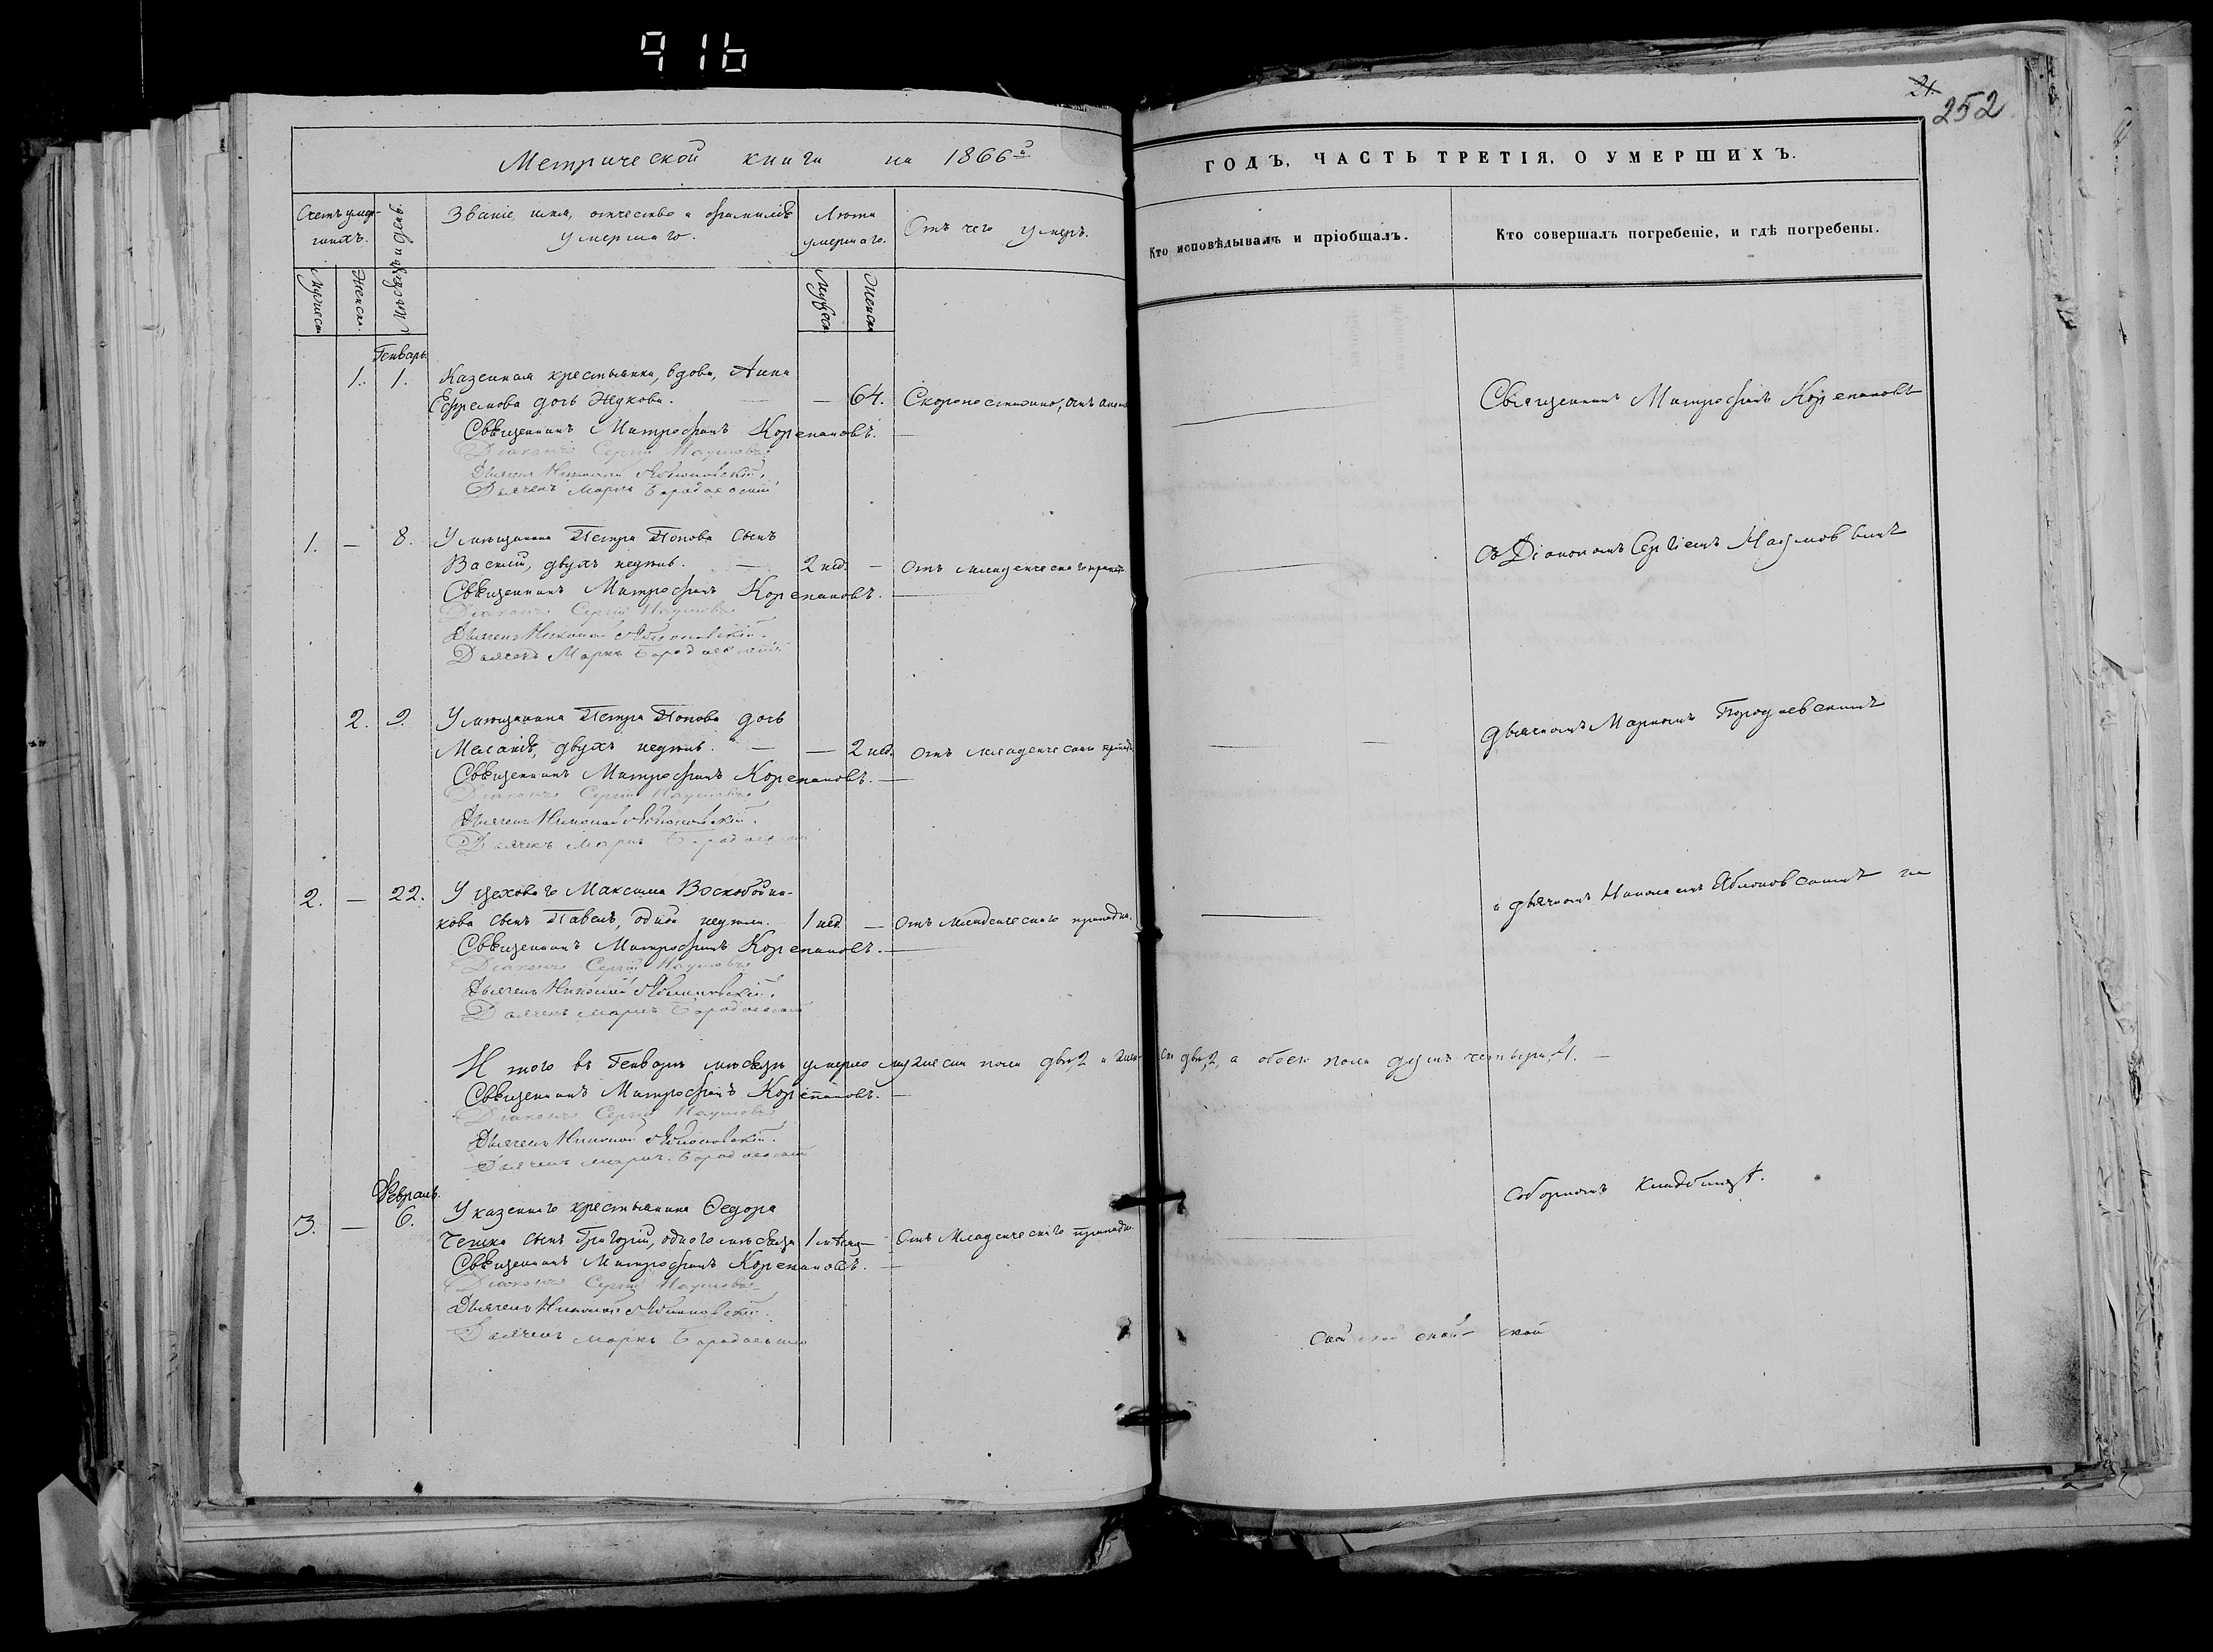 916
Метрической книги на 1866й
Счетъ умер-
шихъ.
Мѣсяцъ и день.
Званіе, имя, отчество и фамилія
умершаго.
Лѣта
умершаго.
Отъ чего умеръ.
Мужеск.
Женск.
Мужеск.
Женск.
Генварь.
1. 1. Казенная крестьянка, вдова, Анна
Ефремова дочь Жукова. — — 64. Скоропостижно, отъ
Священникъ Митрофанъ Корепановъ. —
Діаконъ Сергій Наумовъ
Дьячекъ Николай Яблоновскій.
Дьячекъ Маркъ Бородаевскій
1. — 8. У мѣщанина Петра Попова сынъ
Василій, двухъ недѣль. — 2 нед. — Отъ младенческаго
Священникъ Митрофанъ Корепановъ. —
Діаконъ Сергій Наумовъ
Дьячекъ Николай Яблоновскій.
Дьячекъ Маркъ Бородаевскій
2. 9. У мѣщанина Петра Попова дочь
Маланія, двухъ недѣль. — — 2 нед. Отъ младенческаго
Священникъ Митрофанъ Корепановъ. —
Діаконъ Сергій Наумовъ
Дьячекъ Николай Яблоновскій.
Дьячекъ Маркъ Бородаевскій
2. — 22. У цеховаго Максима Воскобойни-
кова сынъ Павелъ, одной недѣли. 1 нед. — Отъ младенческаго припадка.
Священникъ Митрофанъ Корепановъ. —
Діаконъ Сергій Наумовъ
Дьячекъ Николай Яблоновскій.
Дьячекъ Маркъ Бородаевскій
Итого въ Генварѣ мѣсяцѣ умерло мужеска пола два, 2 и женска два, 2, а обоего пола душъ четыре, 4. —
Священникъ Митрофанъ Корепановъ. —
Діаконъ Сергій Наумовъ
Дьячекъ Николай Яблоновскій.
Дьячекъ Маркъ Бородаевскій
Февраль.
3. — 6. У казеннаго крестьянина Ѳедора
сынъ Григорій, одного мѣсяца 1 мѣсяц — Отъ младенческаго припадка.
Священникъ Митрофанъ Корепановъ. —
Діаконъ Сергій Наумовъ
Дьячекъ Николай Яблоновскій.
Дьячекъ Маркъ Бородаевскій
21.
252
ГОДЪ, ЧАСТЬ ТРЕТІЯ, О УМЕРШИХЪ.
Кто исповѣдывалъ и пріобщалъ.
Кто совершалъ погребеніе, и гдѣ погребены.
Священникъ Митрофанъ Корепановъ
съ Діакономъ Сергіемъ Наумовымъ
дьячкомъ Маркомъ Бородаевскимъ
и дьячкомъ Николаемъ Яблоновскимъ на
соборномъ кладбищѣ.